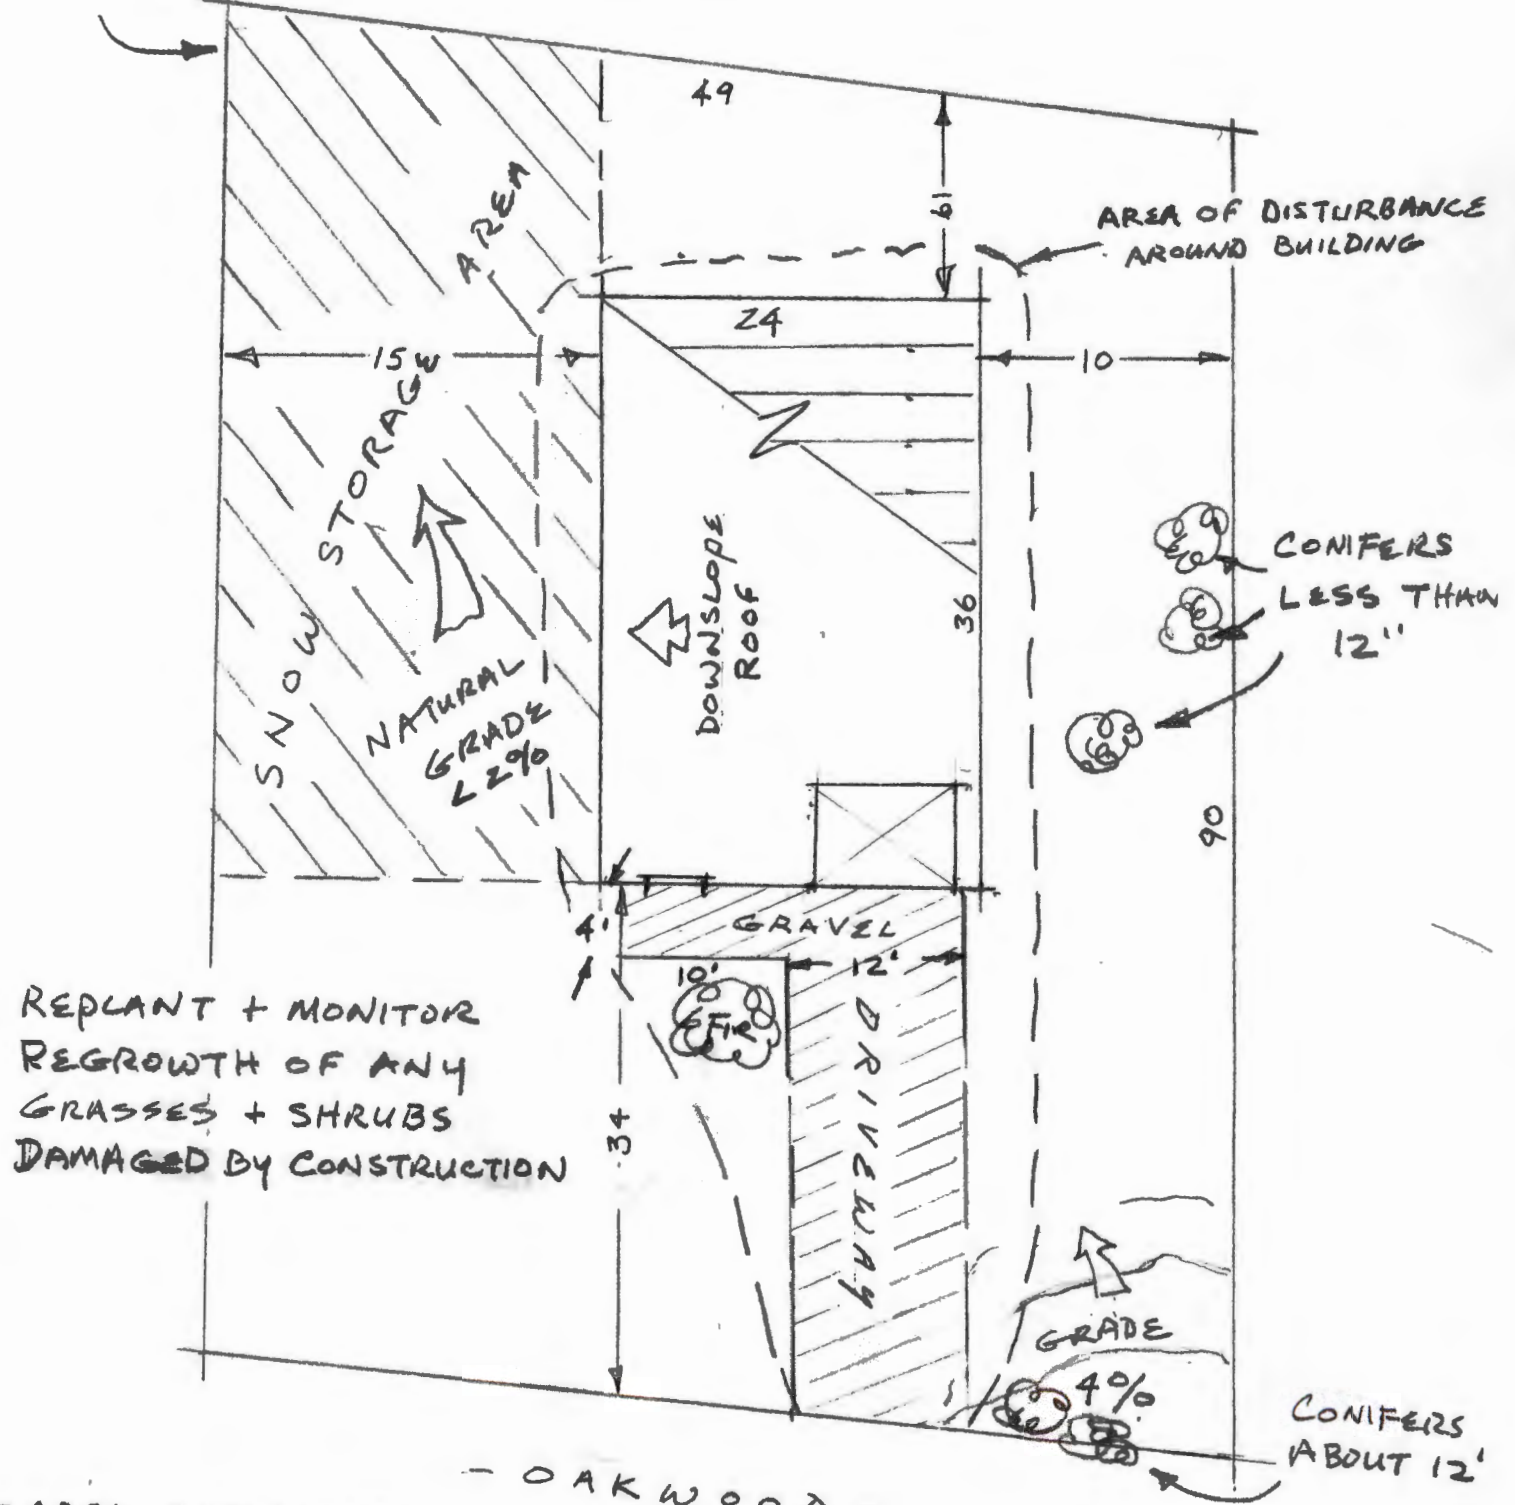 49
19
AREA OF DISTURBANCE
AROUND BUILDING
SNOW STORAGE AREA
24
15
10
DOWNSLOPE
ROOF
36
CONIFERS
LESS THAN
12"
NATURAL
GRADE
< 2%
90
4'
GRAVEL
10'
12'
FIR
DRIVEWAY
34
REPLANT + MONITOR
REGROWTH OF ANY
GRASSES + SHRUBS
DAMAGED BY CONSTRUCTION
GRADE
4%
CONIFERS
ABOUT 12'
- OAKWOOD